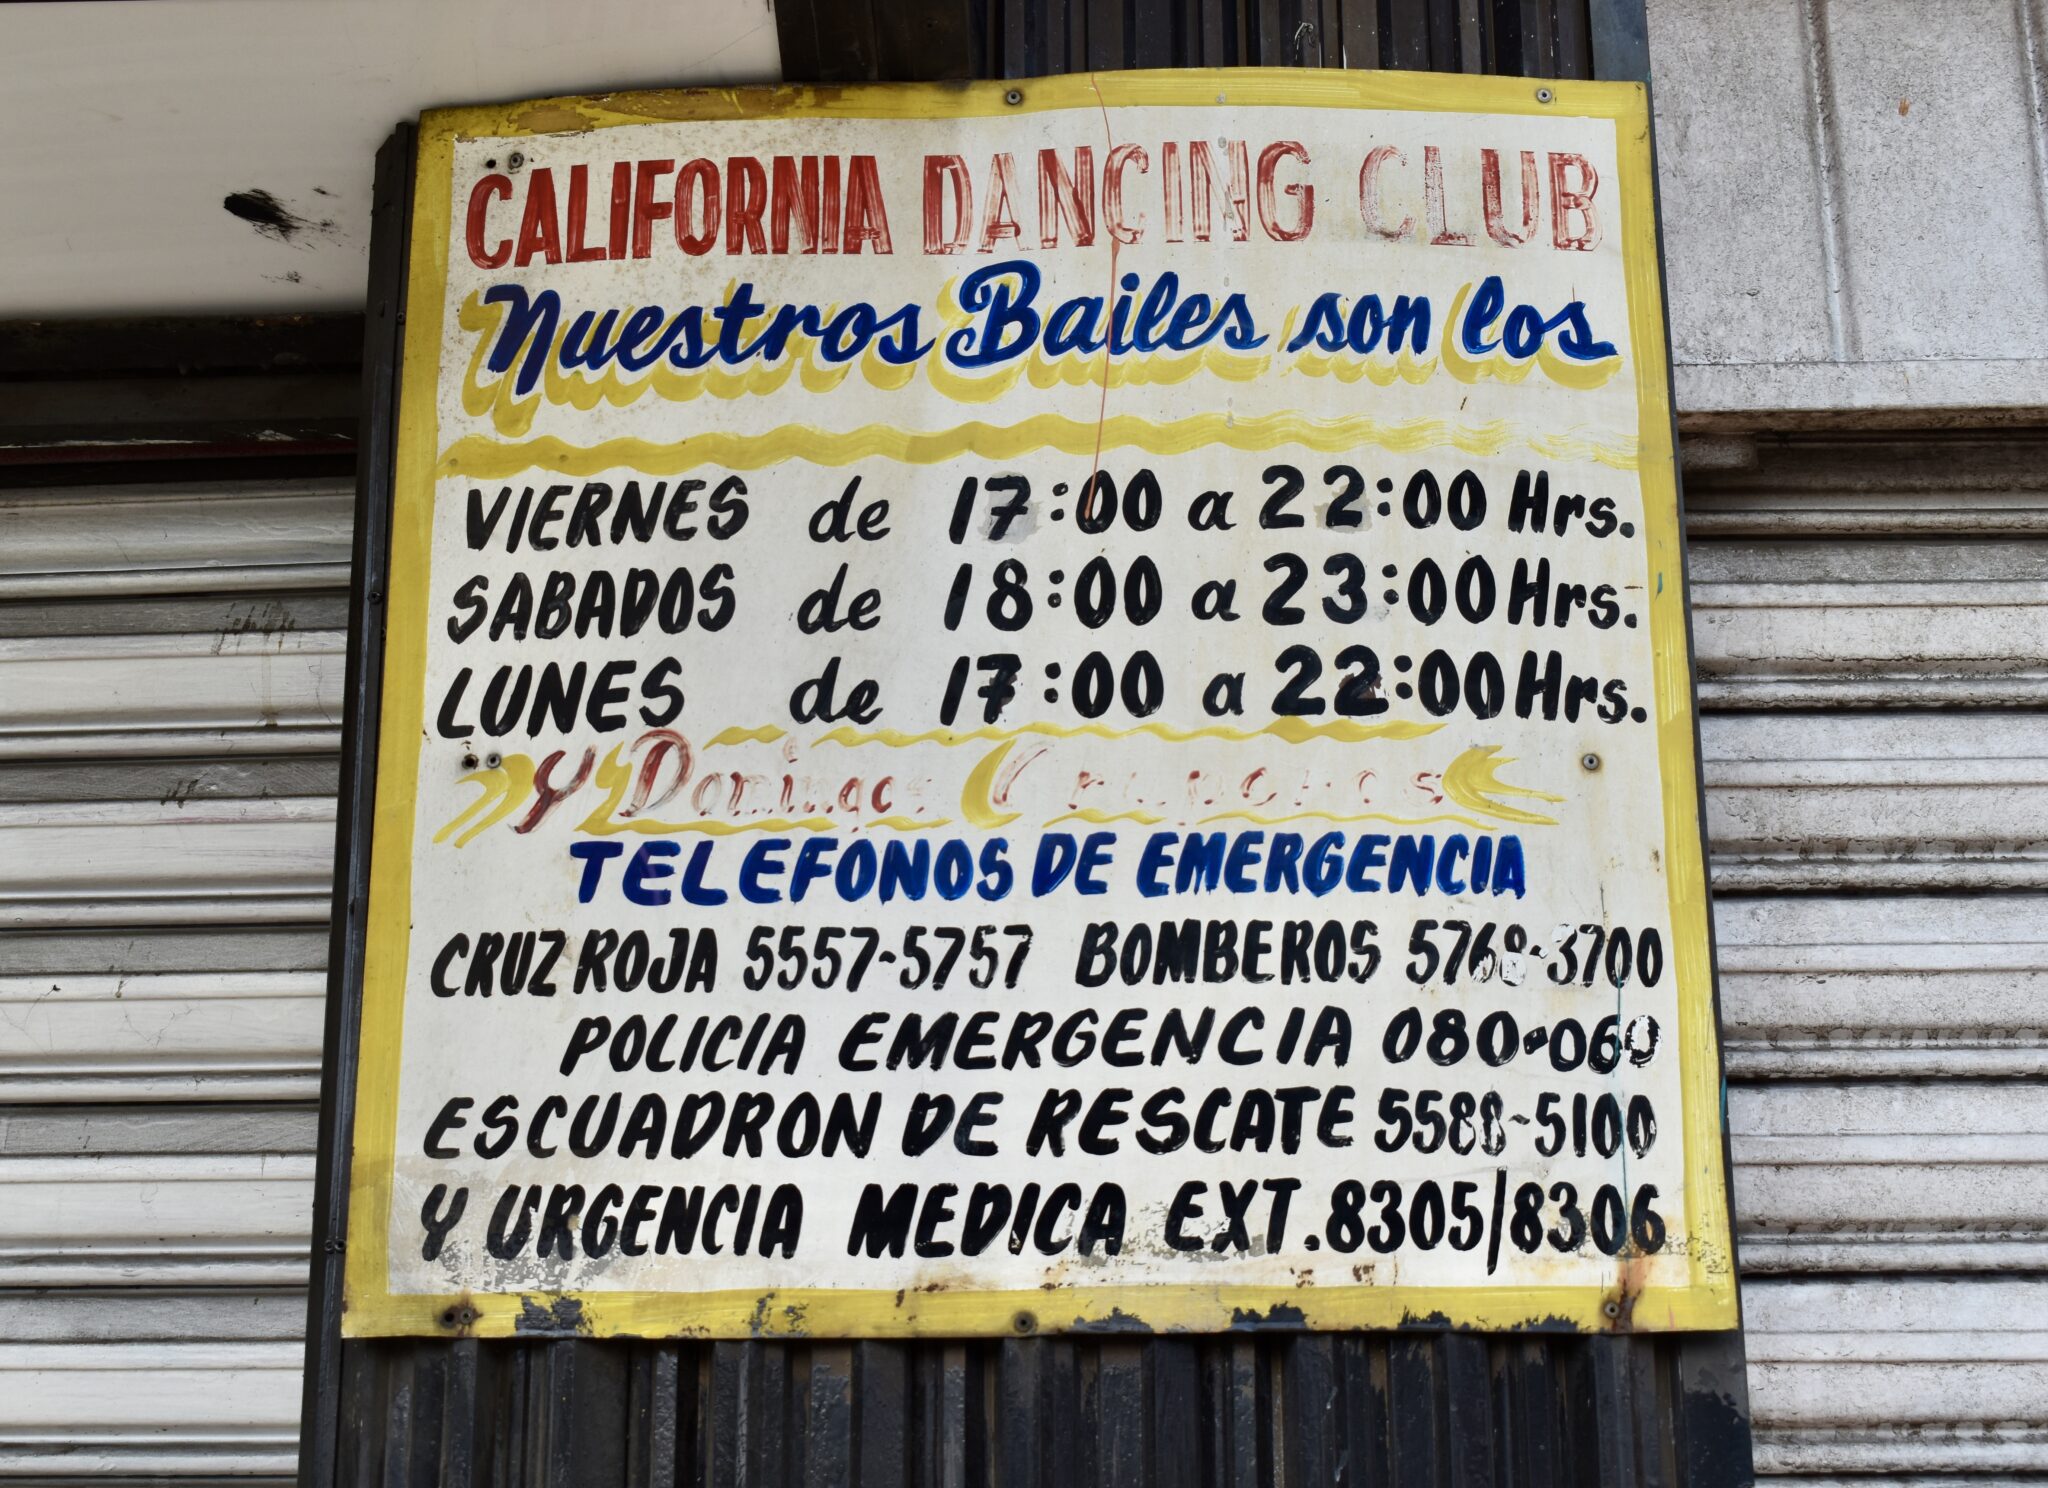 CALIFORNIA DANCING CLUB
Nuestros Bailes son los
VIERNES de 17:00 a 22:00 Hrs.
SABADOS de 18:00 a 23:00 Hrs.
LUNES de 17:00 a 22:00 Hrs.
Y Domingos
TELEFONOS DE EMERGENCIA
CRUZ ROJA 5557-5757 BOMBEROS 5768-3700
POLICIA EMERGENCIA 080-060
ESCUADRON DE RESCATE 5588-5100
Y URGENCIA MEDICA EXT. 8305/8306